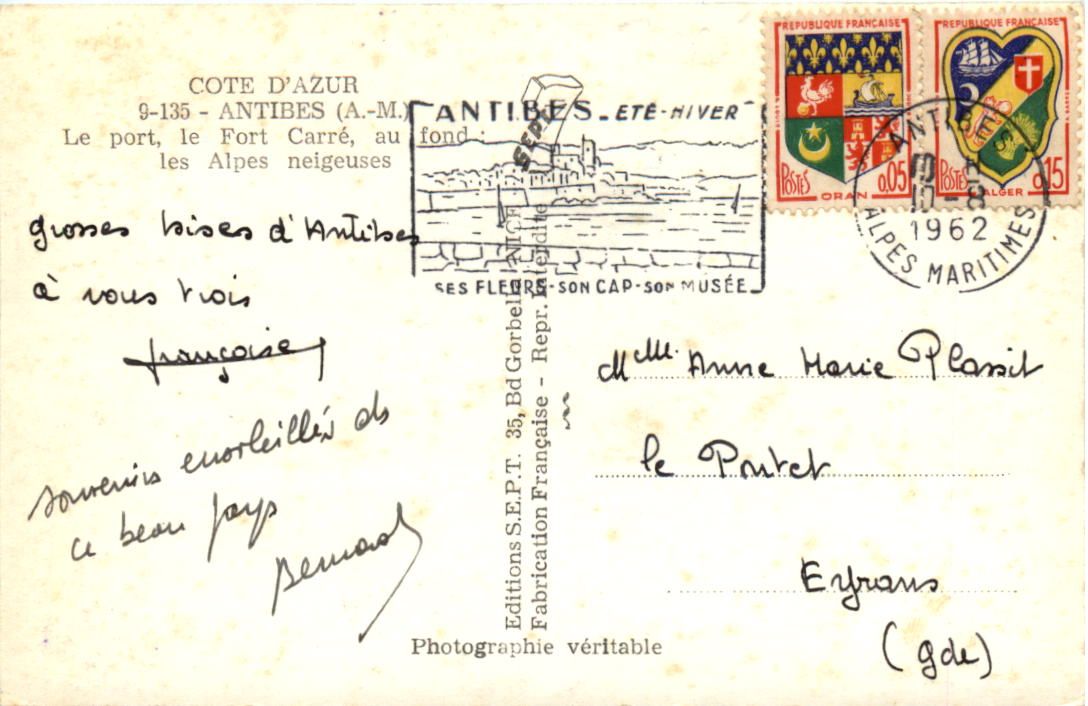 COTE D'AZUR
9-135 - ANTIBES (A.-M.)
Le port, le Fort Carré, au fond :
les Alpes neigeuses
grosses bises d'Antibes
à vous trois
françoise
souvenirs ensoleillés de
ce beau pays
Bernard
SEPT
ANTIBES - ETE-HIVER
SES FLEURS - SON CAP - SON MUSÉE
Editions S.E.P.T. 35, Bd Gorbella NICE
Fabrication Française - Repr. Interdite
Photographie véritable
REPUBLIQUE FRANÇAISE
POSTES 0,05
ORAN
REPUBLIQUE FRANÇAISE
POSTES 0,15
ALGER
ANTIBES
1962
ALPES MARITIMES
Melle. Anne Marie Plassit
le Pontet
Eyrans
(gde)